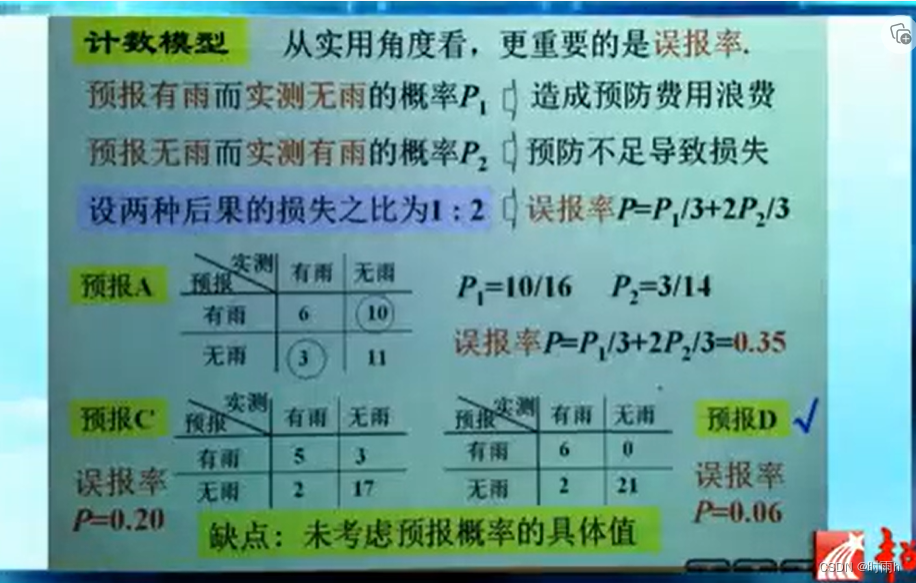 计数模型 从实用角度看，更重要的是误报率.
预报有雨而实测无雨的概率P1 造成预防费用浪费
预报无雨而实测有雨的概率P2 预防不足导致损失
设两种后果的损失之比为1 : 2 误报率P=P1/3+2P2/3
预报A
实测 有雨 无雨
预报
有雨 6 10
无雨 3 11
P1=10/16 P2=3/14
误报率P=P1/3+2P2/3=0.35
预报C
实测 有雨 无雨
预报
有雨 5 3
无雨 2 17
误报率
P=0.20
实测 有雨 无雨
预报
有雨 6 0
无雨 2 21
预报D
误报率
P=0.06
缺点：未考虑预报概率的具体值